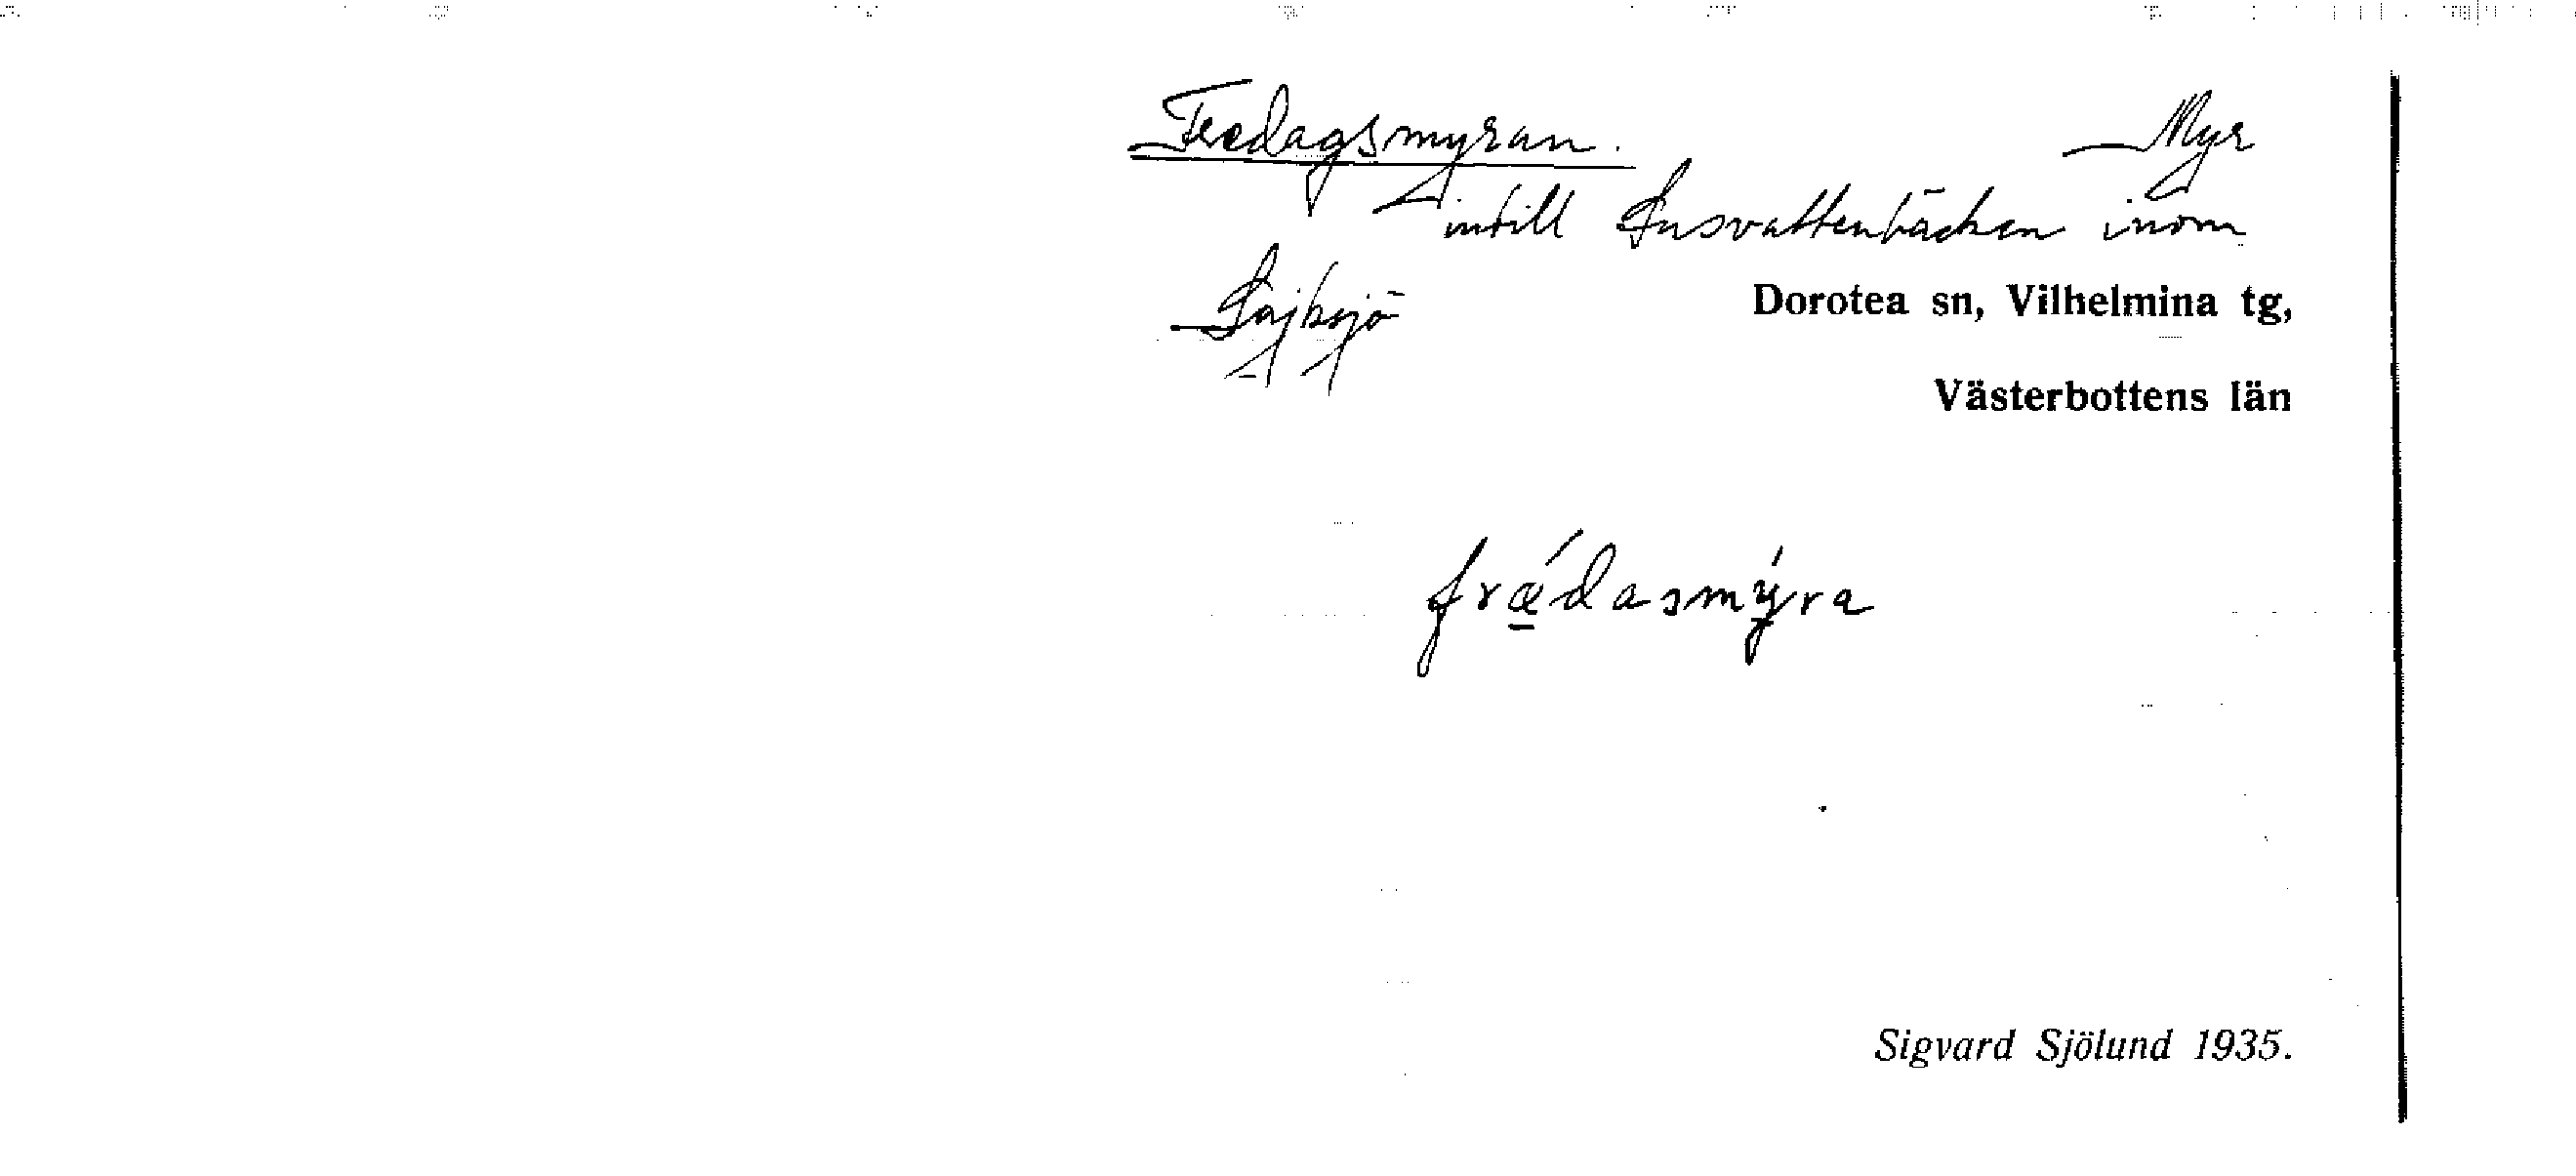 Fredagsmyran. Myr
intill Ljusvattenbäcken inom
Lajksjö
Dorotea sn, Vilhelmina tg,
Västerbottens län
frǽdasmýra
Sigvard Sjölund 1935.